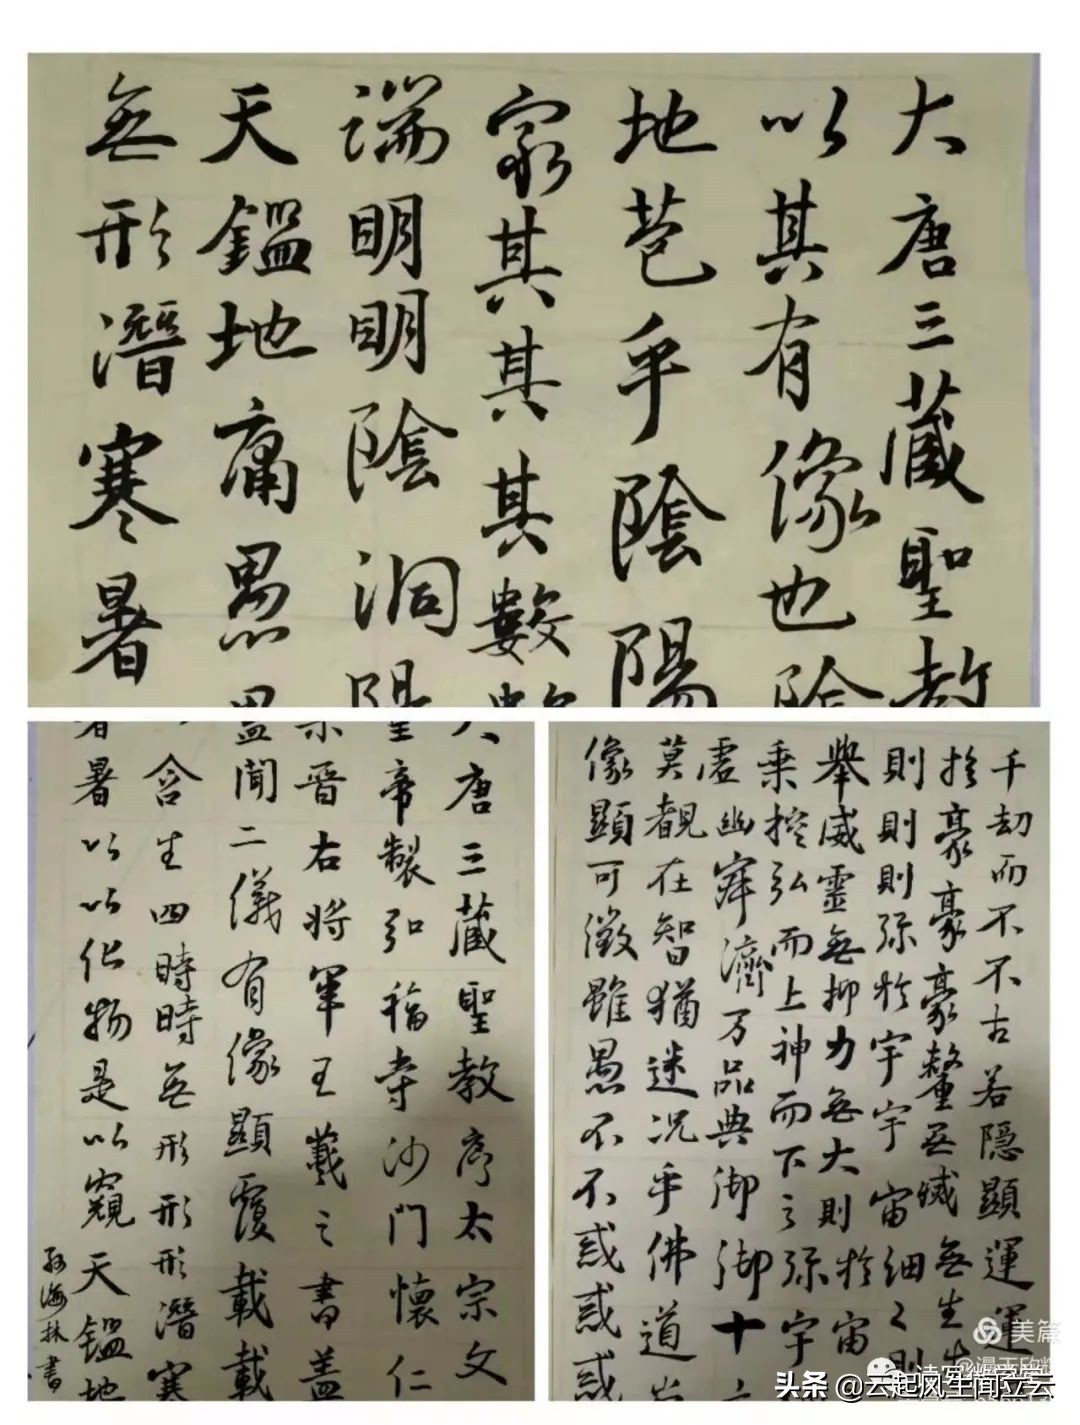 大唐三藏聖教
以其有像也陰
地苞乎陰陽
家其其其數數
端明明陰洞陽
天鑑地庸愚愚
無形潛寒暑
大唐三藏聖教序太宗文
皇帝製弘福寺沙門懷仁
集晉右將軍王羲之書蓋
蓋聞二儀有像顯覆載載
含生四時時無形形形潛寒
暑暑以以化物是以窺天鑑地
孙海林書
千劫而不不古若隱顯運運
於豪豪豪釐無滅無生生
則則則則弥於宇宇宙細之則
舉威靈無抑力無大則於宙
乘控弘而上神而下之弥宇
虛幽寂濟万品典御御十
莫覩在智猶迷況乎佛道
像顯可徵雖愚不不惑惑惑
美篇
头条 @云起风生闻立云